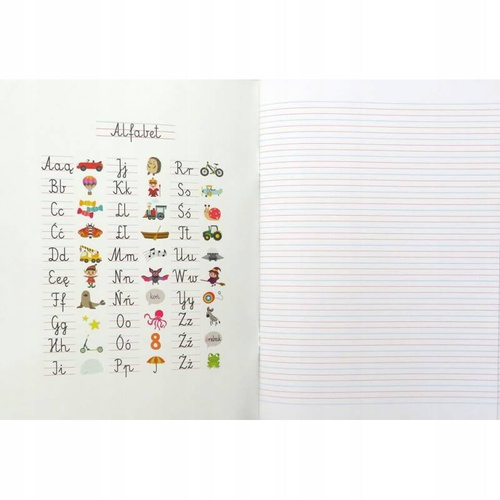 Alfabet
Aaą
Bb
Cc
Ćć
Dd
Eeę
Ff
Gg
Hh
Ii
Jj
Kk
Ll
Łł
Mm
Nn
Ńń koń
Oo
Óó 8
Pp
Rr
Ss
Śś
Tt
Uu
Ww
Yy
Zz
Źź
Żż